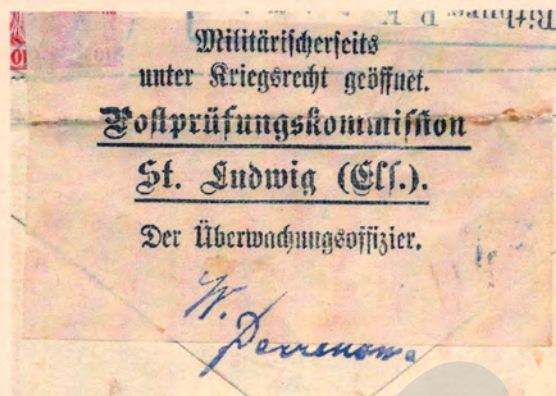 Militärischerseits
unter Kriegsrecht geöffnet.
Postprüfungskommission
St. Ludwig (Els.).
Der Überwachungsoffizier.
W.